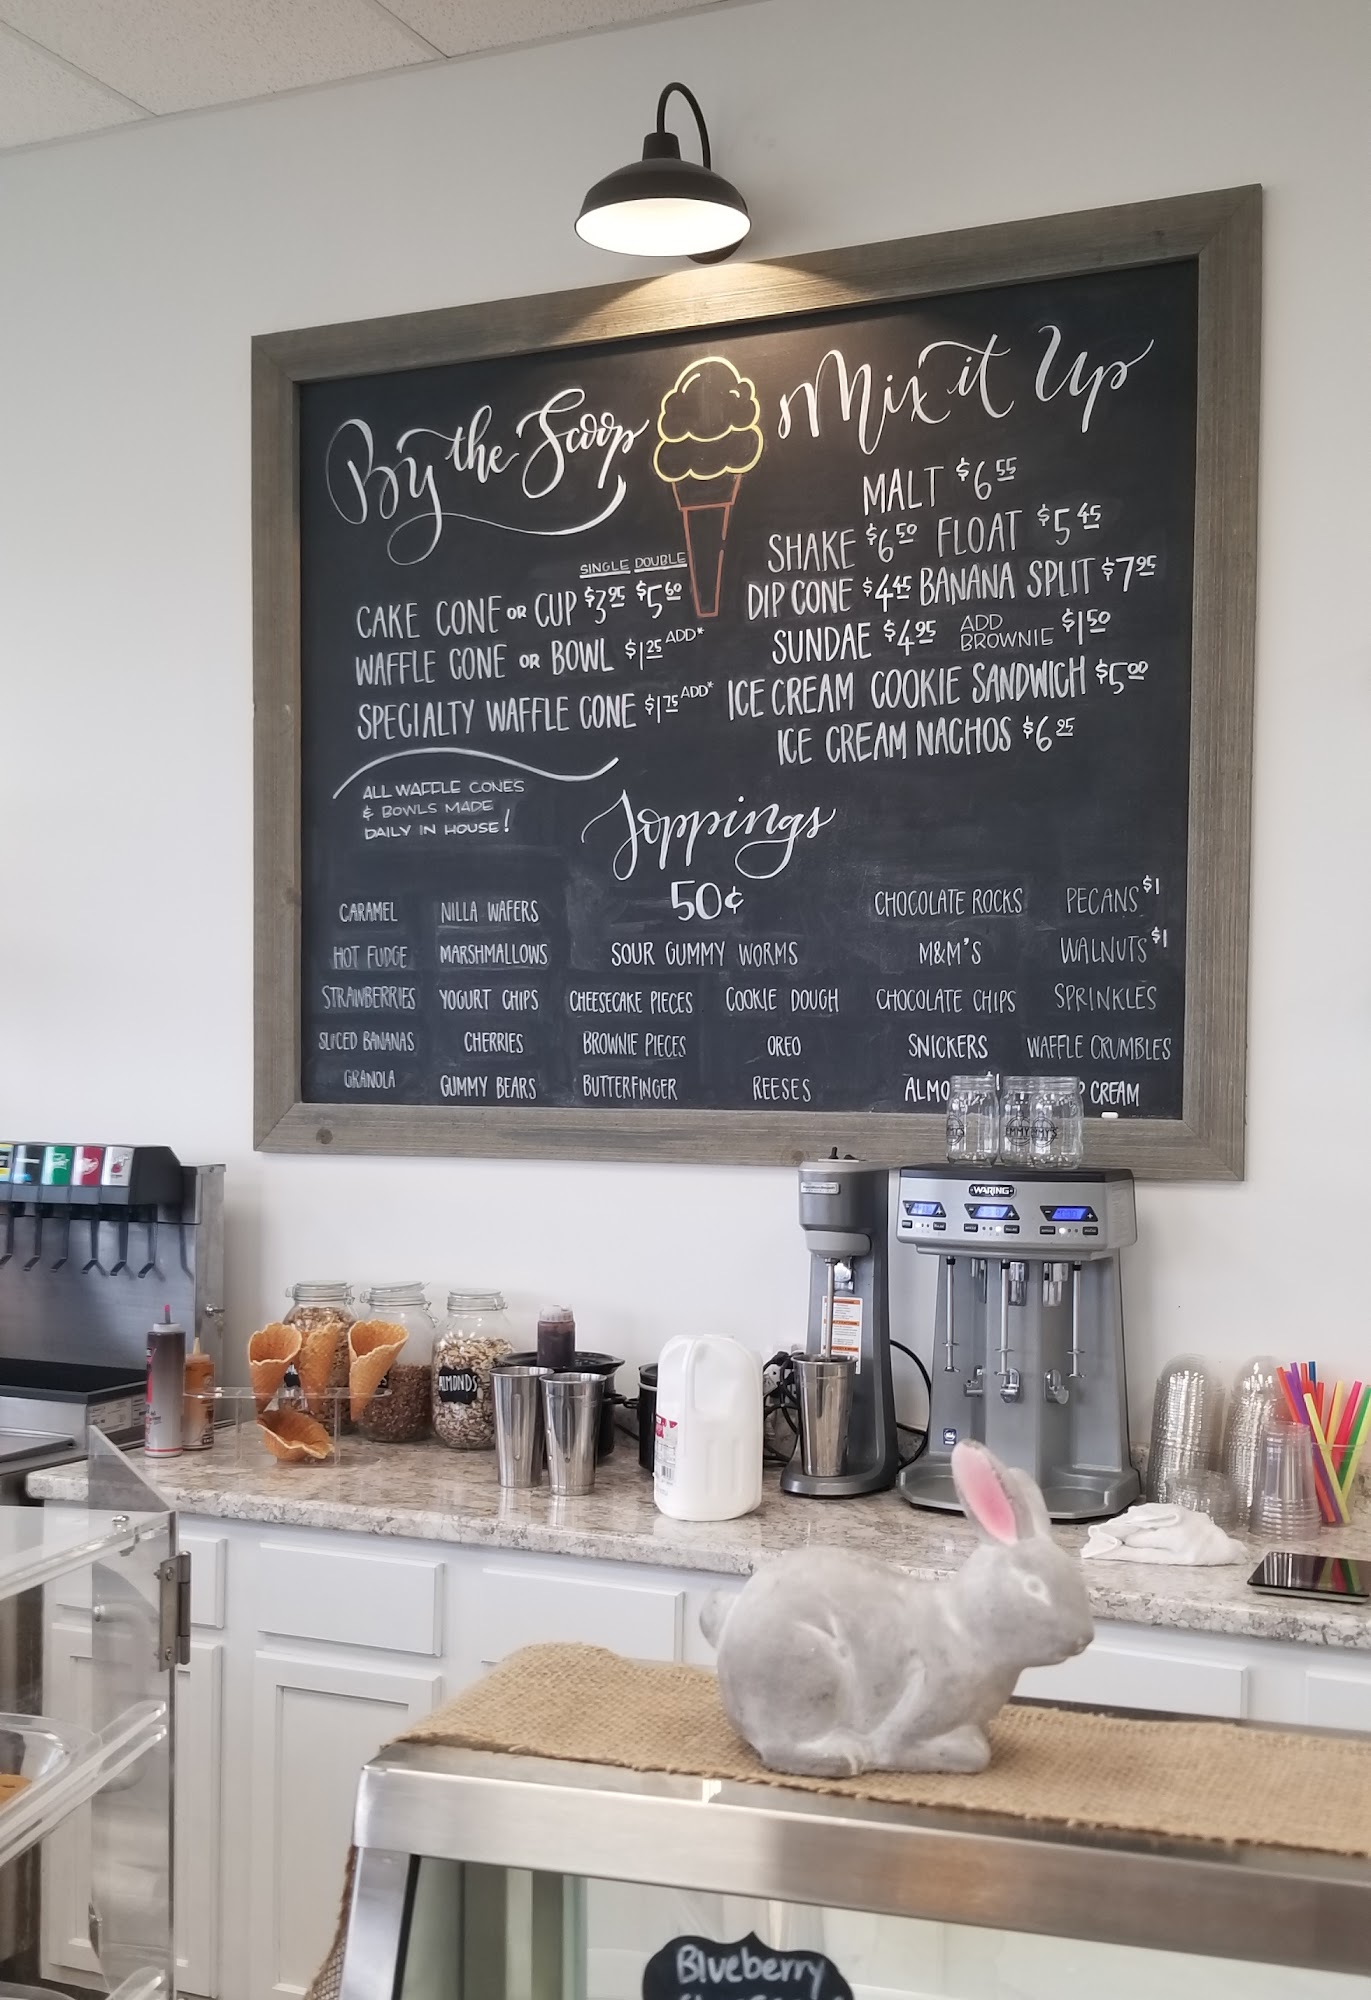 By the Scoop
SINGLE DOUBLE
CAKE CONE OR CUP $3.95 $5.60
WAFFLE CONE OR BOWL $1.25 ADD*
SPECIALTY WAFFLE CONE $1.75 ADD*
ALL WAFFLE CONES
& BOWLS MADE
DAILY IN HOUSE!
Mix it Up
MALT $6.55
SHAKE $6.50 FLOAT $5.45
DIP CONE $4.45 BANANA SPLIT $7.95
SUNDAE $4.95 ADD BROWNIE $1.50
ICE CREAM COOKIE SANDWICH $5.00
ICE CREAM NACHOS $6.95
Toppings
50¢
CARAMEL NILLA WAFERS CHOCOLATE ROCKS PECANS $1
HOT FUDGE MARSHMALLOWS SOUR GUMMY WORMS M&M'S WALNUTS $1
STRAWBERRIES YOGURT CHIPS CHEESECAKE PIECES COOKIE DOUGH CHOCOLATE CHIPS SPRINKLES
SLICED BANANAS CHERRIES BROWNIE PIECES OREO SNICKERS WAFFLE CRUMBLES
GRANOLA GUMMY BEARS BUTTERFINGER REESES ALMO $1 P CREAM
WARING
ALMONDS
Blueberry